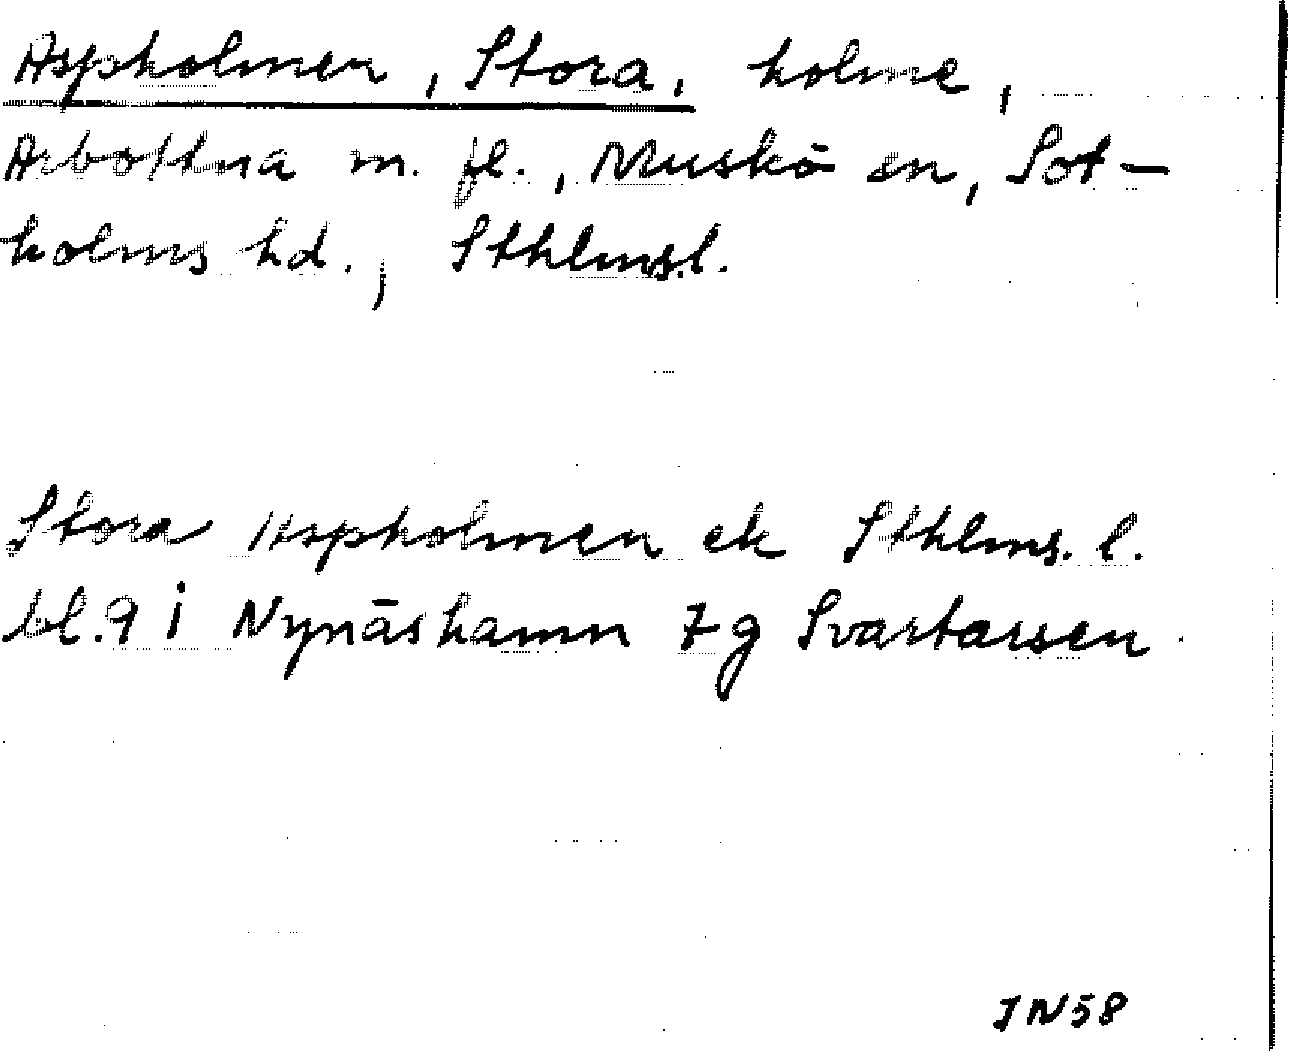 Aspholmen, Stora, holme,
Arbottna m. fl., Muskö sn, Sot-
holms hd., Sthlms.l.
Stora Aspholmen ek Sthlms. l.
bl.9 i Nynäshamn 7 g Svartarsen
JN58